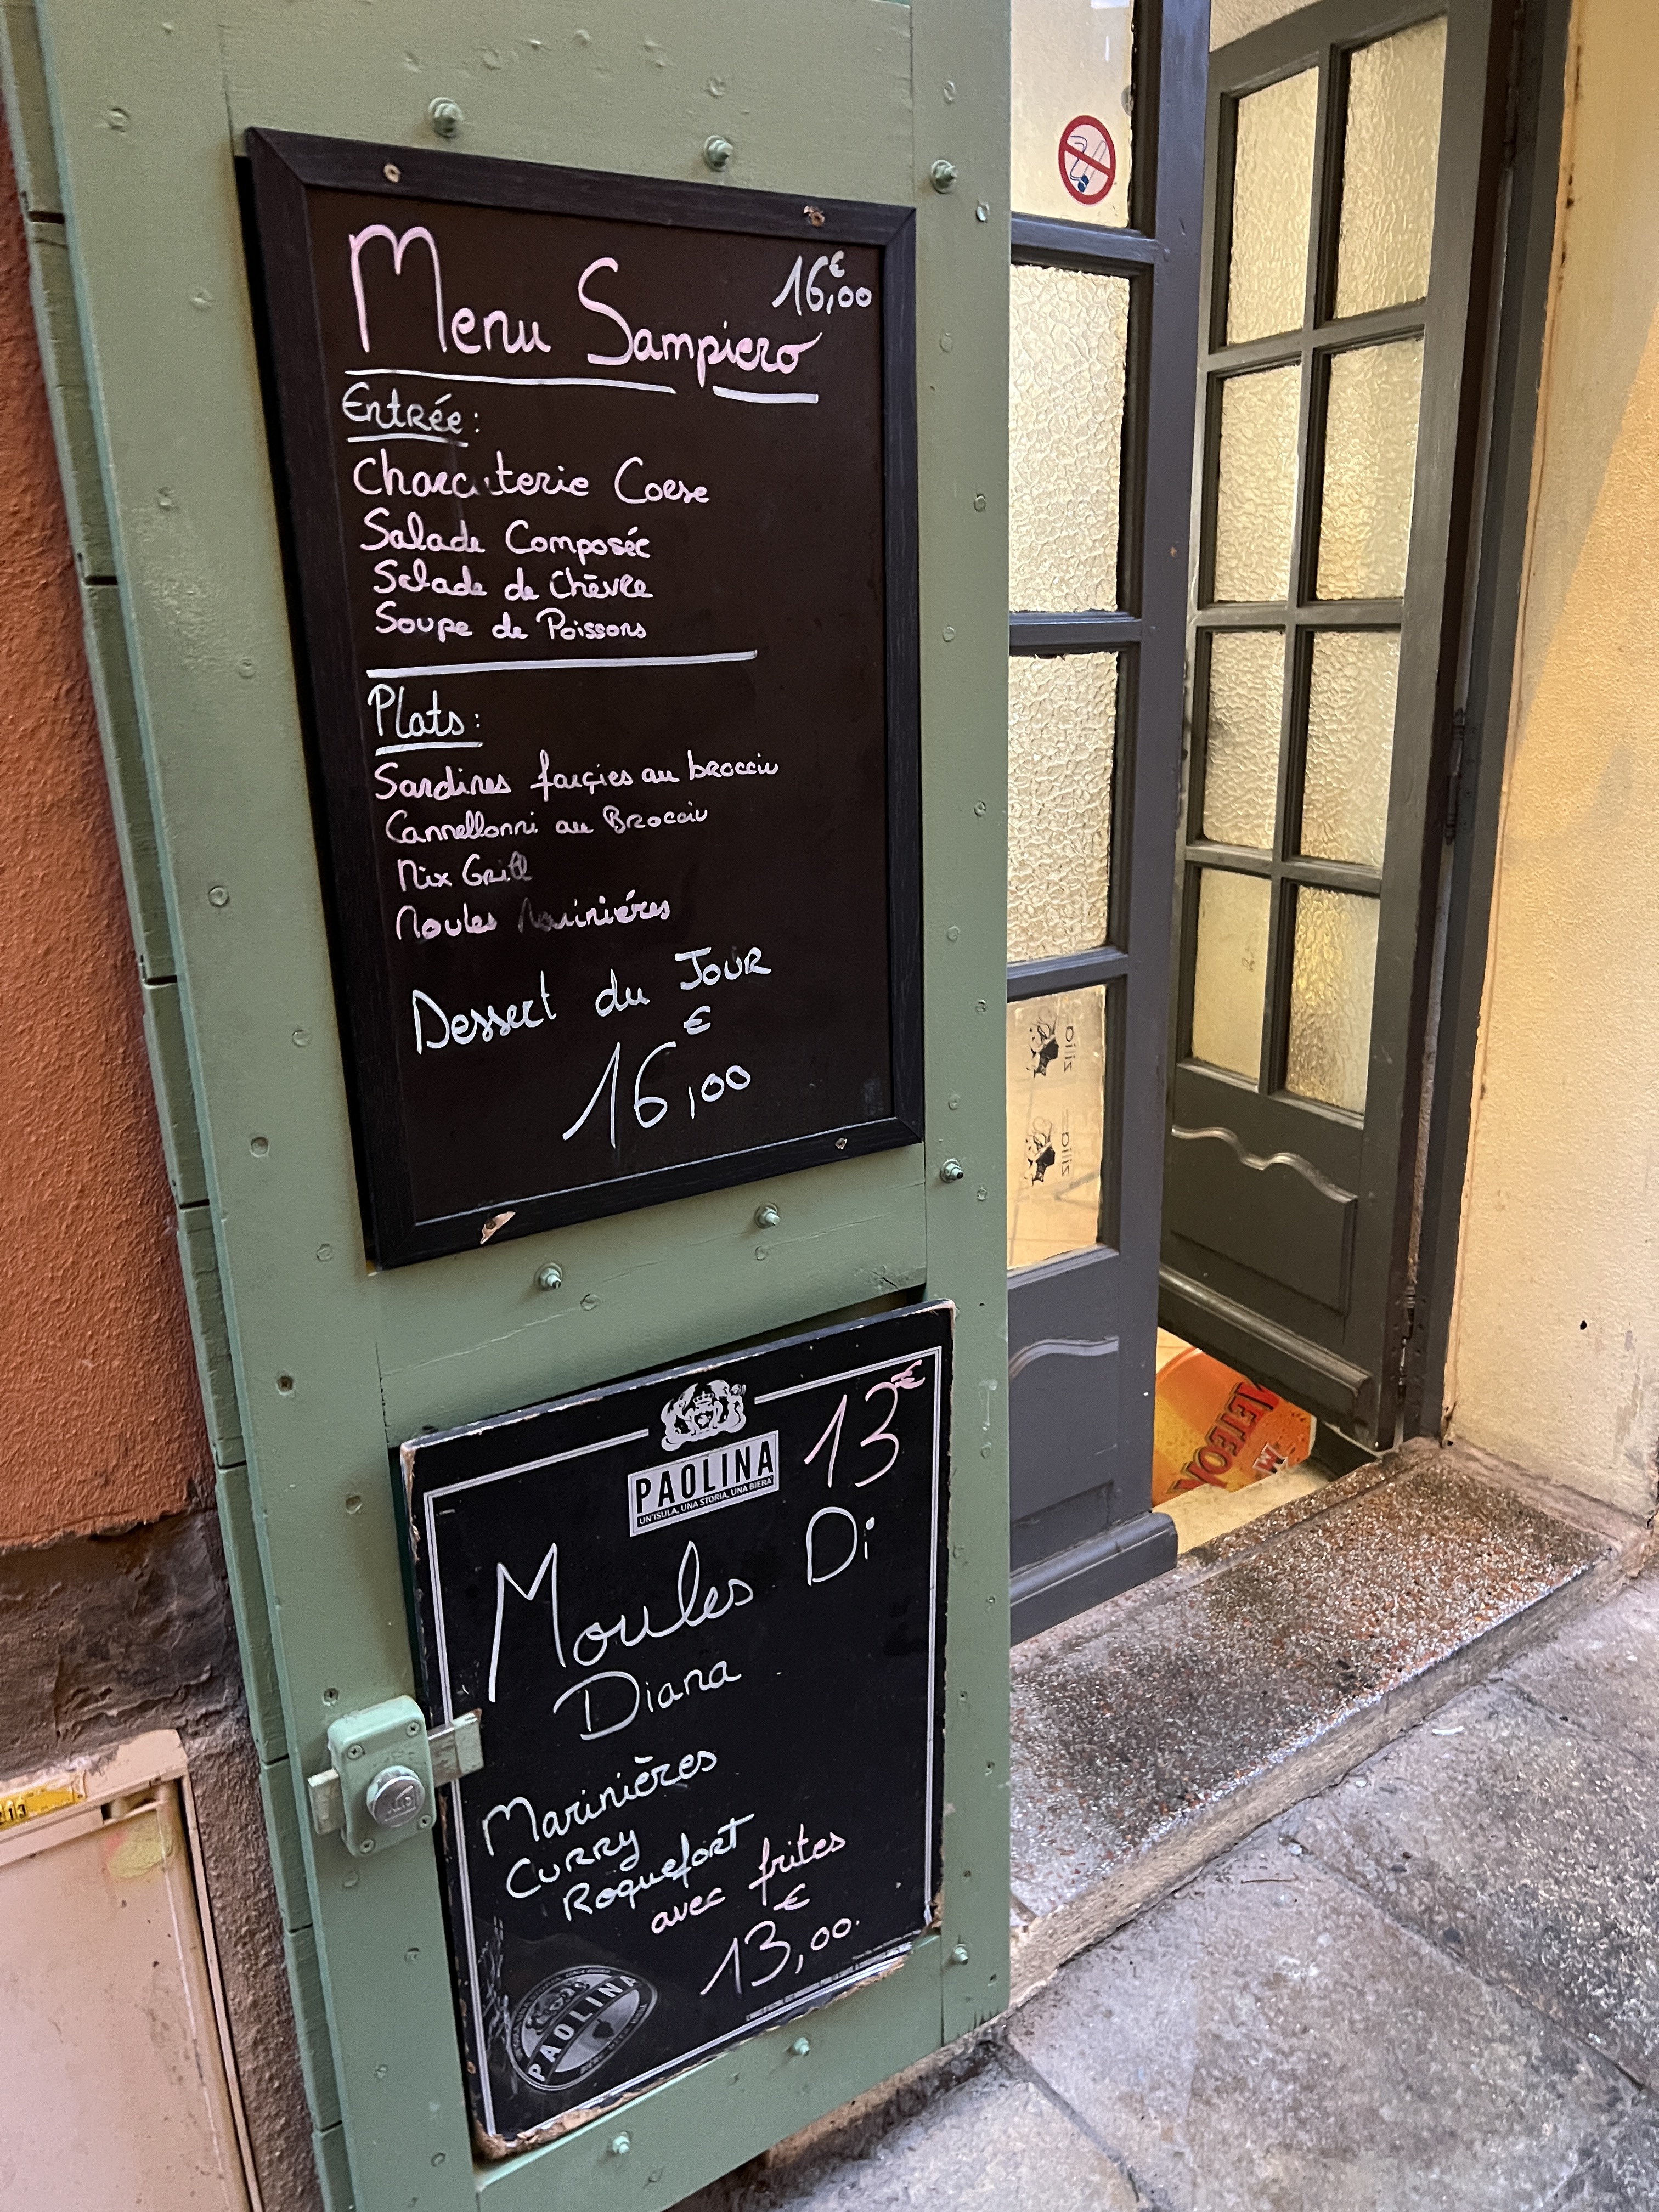 16,00€
Menu Sampiero
Entrée :
Charcuterie Corse
Salade Composée
Salade de Chèvre
Soupe de Poissons
Plats :
Sardines farçies au brocciu
Cannellonni au Brocciu
Mix Grill
Moules Marinières
Dessert du JOUR
€
16,00
13€
PAOLINA
UN'ISULA, UNA STORIA, UNA BIERA
Moules Di
Diana
Marinières
CURRY
Roquefort
avec frites
€
13,00.
PAOLINA
Zilia
Zilia
METEOR
213